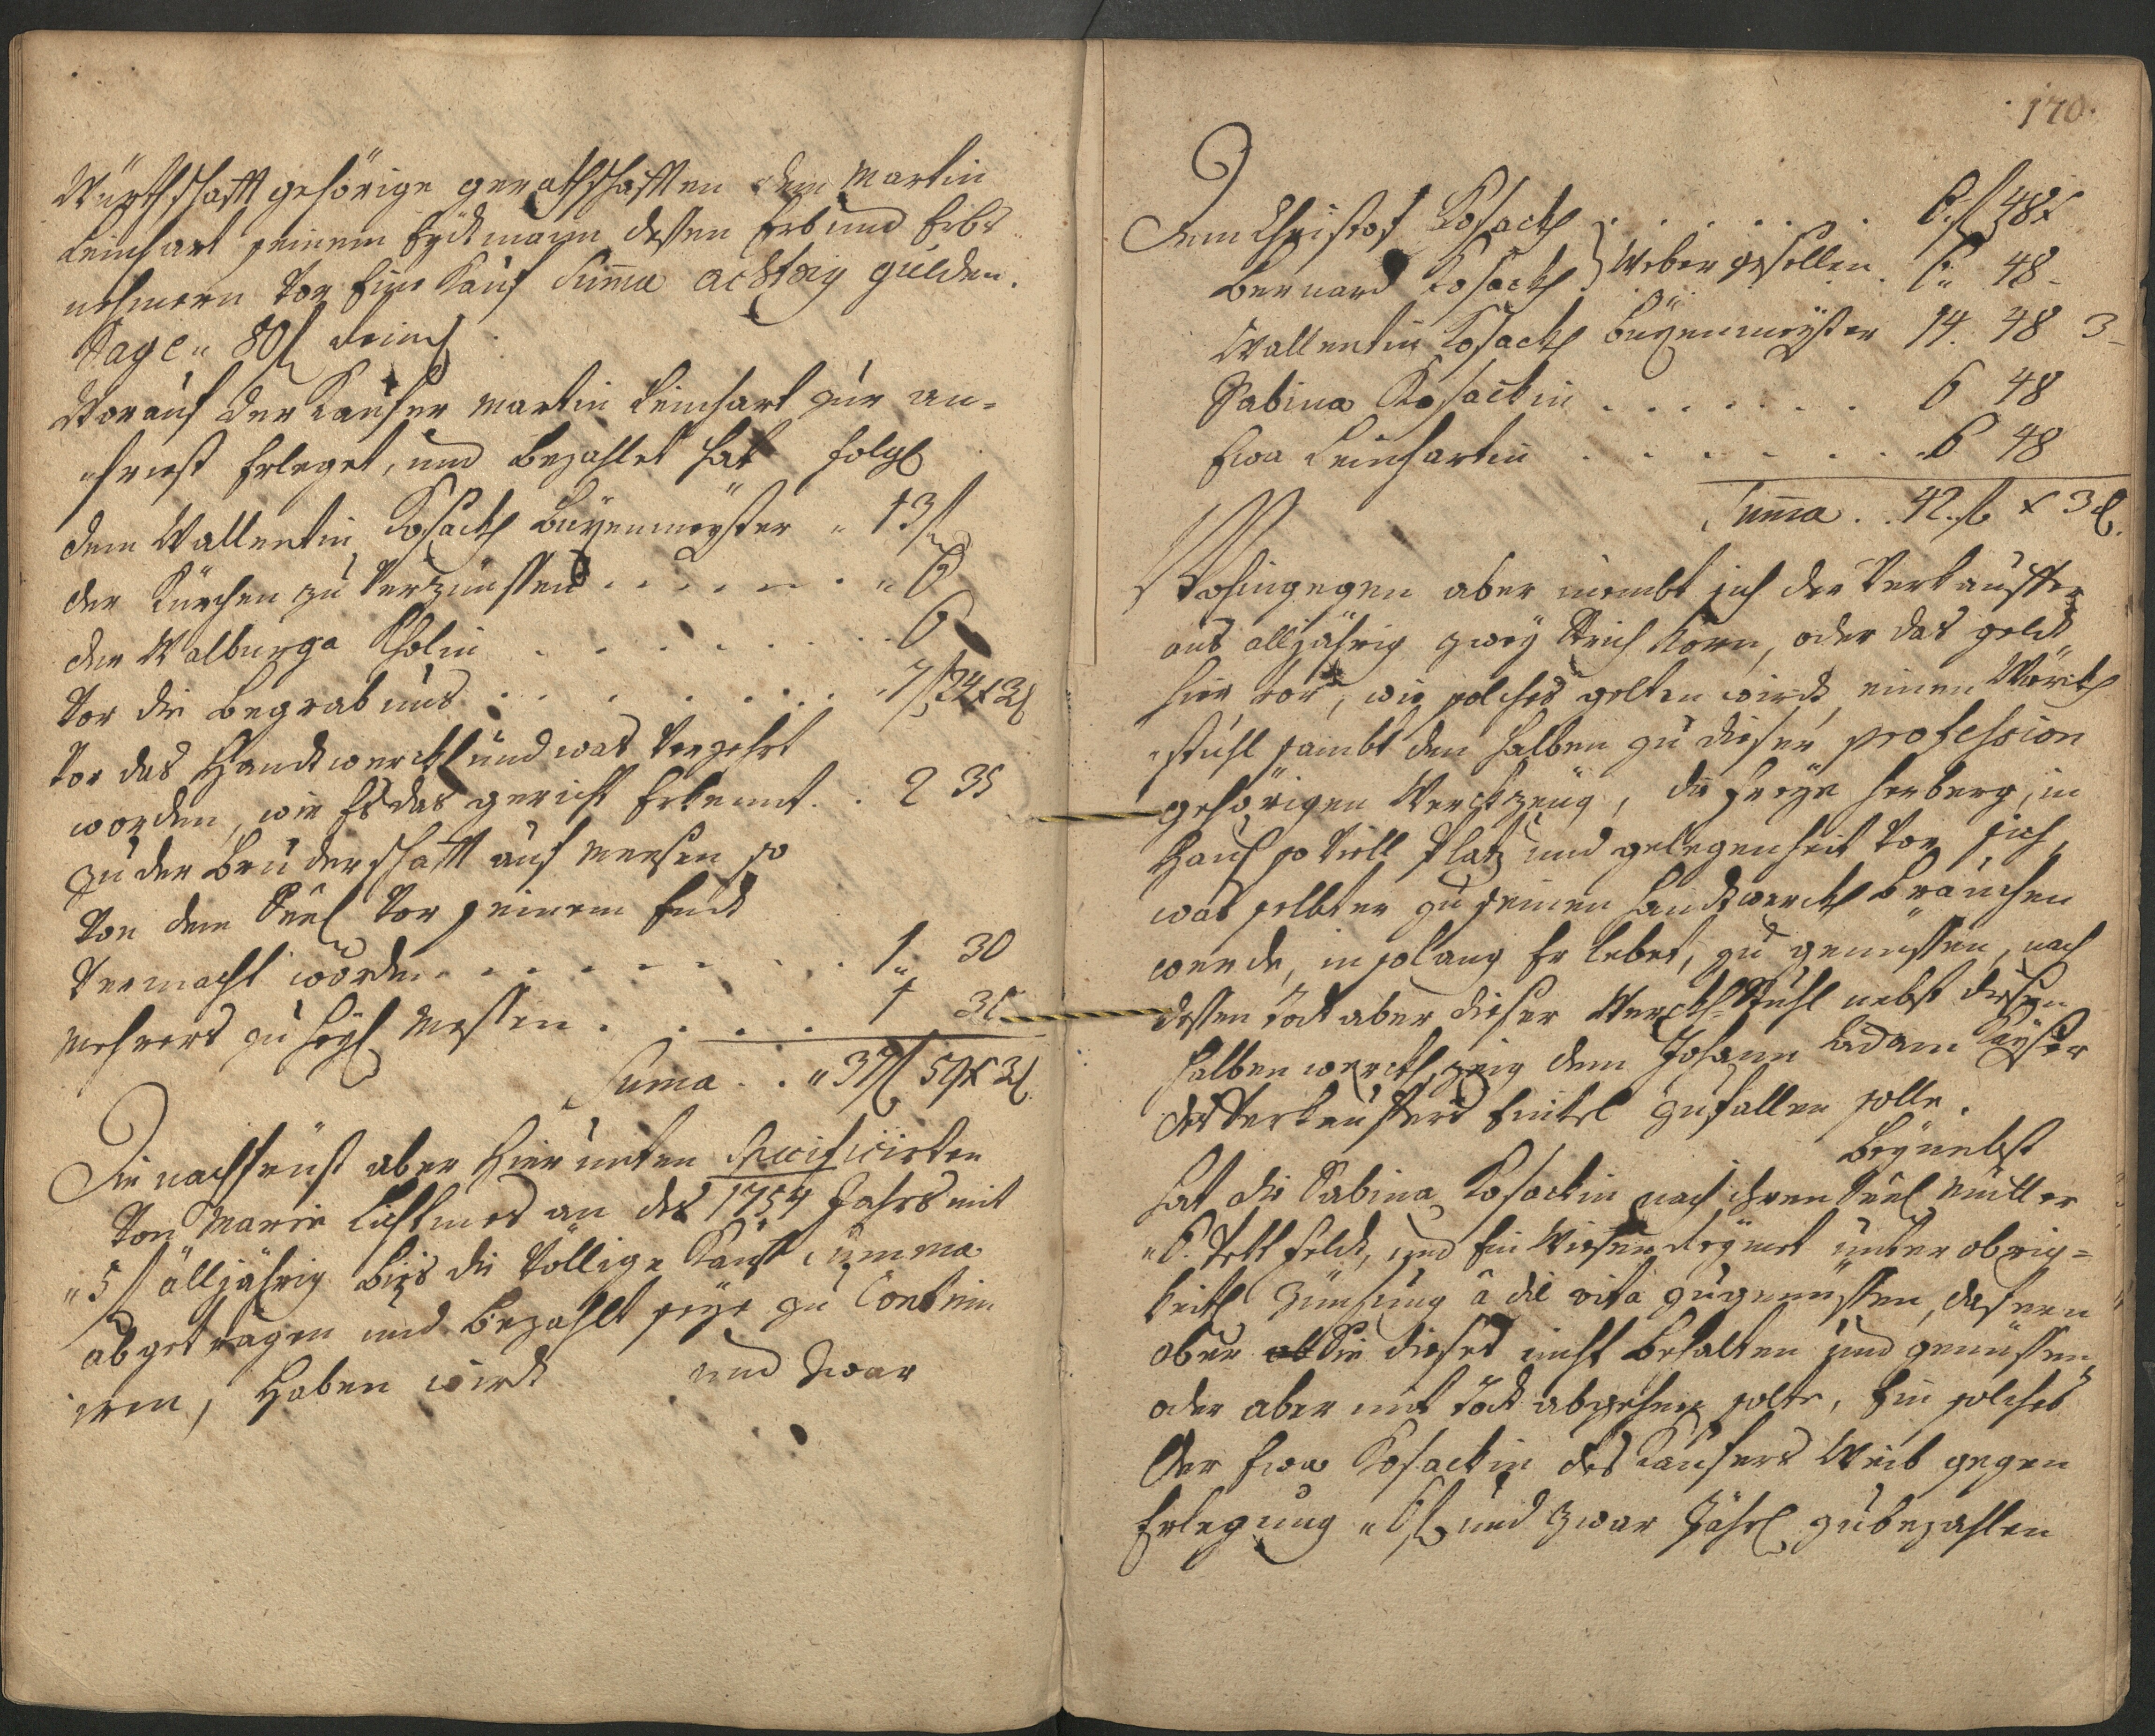 Würthschafft gehörige gerathschafften dem Martin
Leinhart seinem Eydtmann dessen Erb und Erbs
nehmern vor Eine Kauf Summa achtzig gulden.
Sage „ 80 f Reinl
Worauf der Kaufer Martin Leinhart zur an-
„frist Erleget, und bezahlet hat folgl
dem Wallentin Kosackh Buxenmeyster „ 13 f
der Kürchen zu verzünssen . . . . . „ 6
der Walburga Kholin . . . . . . 6
vor die begrabnus . . . . . . 7 f 24 x 3 d
vor das Handtwerckh und was verzehrt
worden, wie Es das gericht Erkennt . . 2 35
zu der Bruderschafft auf Meesen so
von dem Seel vor seinem Endt
vermacht worden . . . . . . . 1 30
Mehrers zu heyl Messen . . . . 1 30
Suma . . „ 37 f 59 x 3 d
Die nachfrist aber hier unten Specificirten
von Marie Lichtmes an des 1754 Jahrs mit
„ 5 f alljährig bis die völlige Kauf Summa
abgetragen und bezahlt seye zu Contui
iren, haben wirdt und zwar
170.
Dem Christof Kosackh . . . . . . . 6 f 48 x
Bernard Kosackh } Weber gesellen . 6 „ 48 -
Wallentin Kosackh Buxenmeyster 14. 48 3 -
Sabina Kosackin . . . . . . . 6 48
Eva Leinhartin . . . . . . . 6 48
Summa . . 42. f x 3 d.
Wohingegen aber nimbt sich der Verkauffer
aus alljährig zwey Strich Korn, oder das geldt
hier vor, wie solches gelten wirdt, einen Wörckh
„stuhl sambt den halben zu dieser profession
gehörigen Werckzeug, die freye herberg, in
Haus so viell Platz und gelegenheit vor sich,
was selbter zu seinen handtwerckh brauchen
werde, insolang Er lebet, zu genüssen, nach
dessen Todt aber dieser Werckh Stuhl nebst diesen
halben werckhzeig dem Johann Adam Keyser
des Verkauffers Enikel zufallen solle.
Beynebst
hat die Sabina Kosackin nach ihren Seel Mutter
„ 6. Bett feldt, und Ein Wiesen undter obrig-
keitl Zünsung â die vita zugenüssen, dafern
aber Sie dieses nicht behalten und genüssen,
oder aber mit Todt abgehen solte, Ein solches
der Eva Kosackin des Kaufers Weib gegen
Erlegung „ 6 f und zwar Jährl zubezahlen